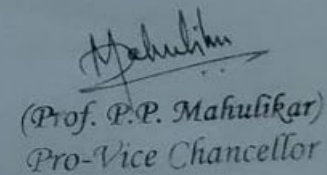 Mahulikar
(Prof. P.P. Mahulikar)
Pro-Vice Chancellor